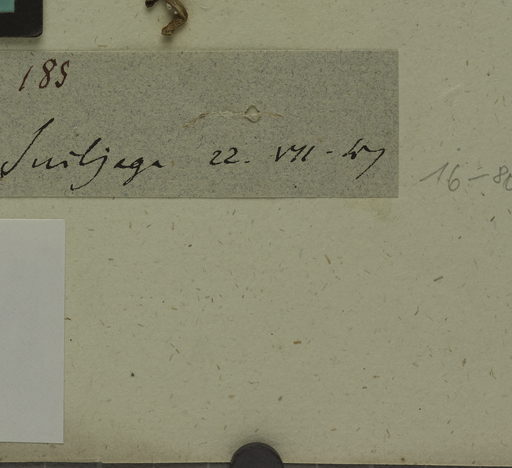 185
Sviljaga 22. VII -
16-80